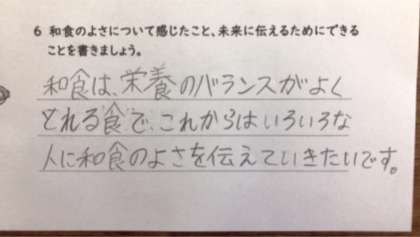 6 和食のよさについて感じたこと、未来に伝えるためにできる
ことを書きましょう。
和食は、栄養のバランスがよく
とれる食で、これからはいろいろな
人に和食のよさを伝えていきたいです。